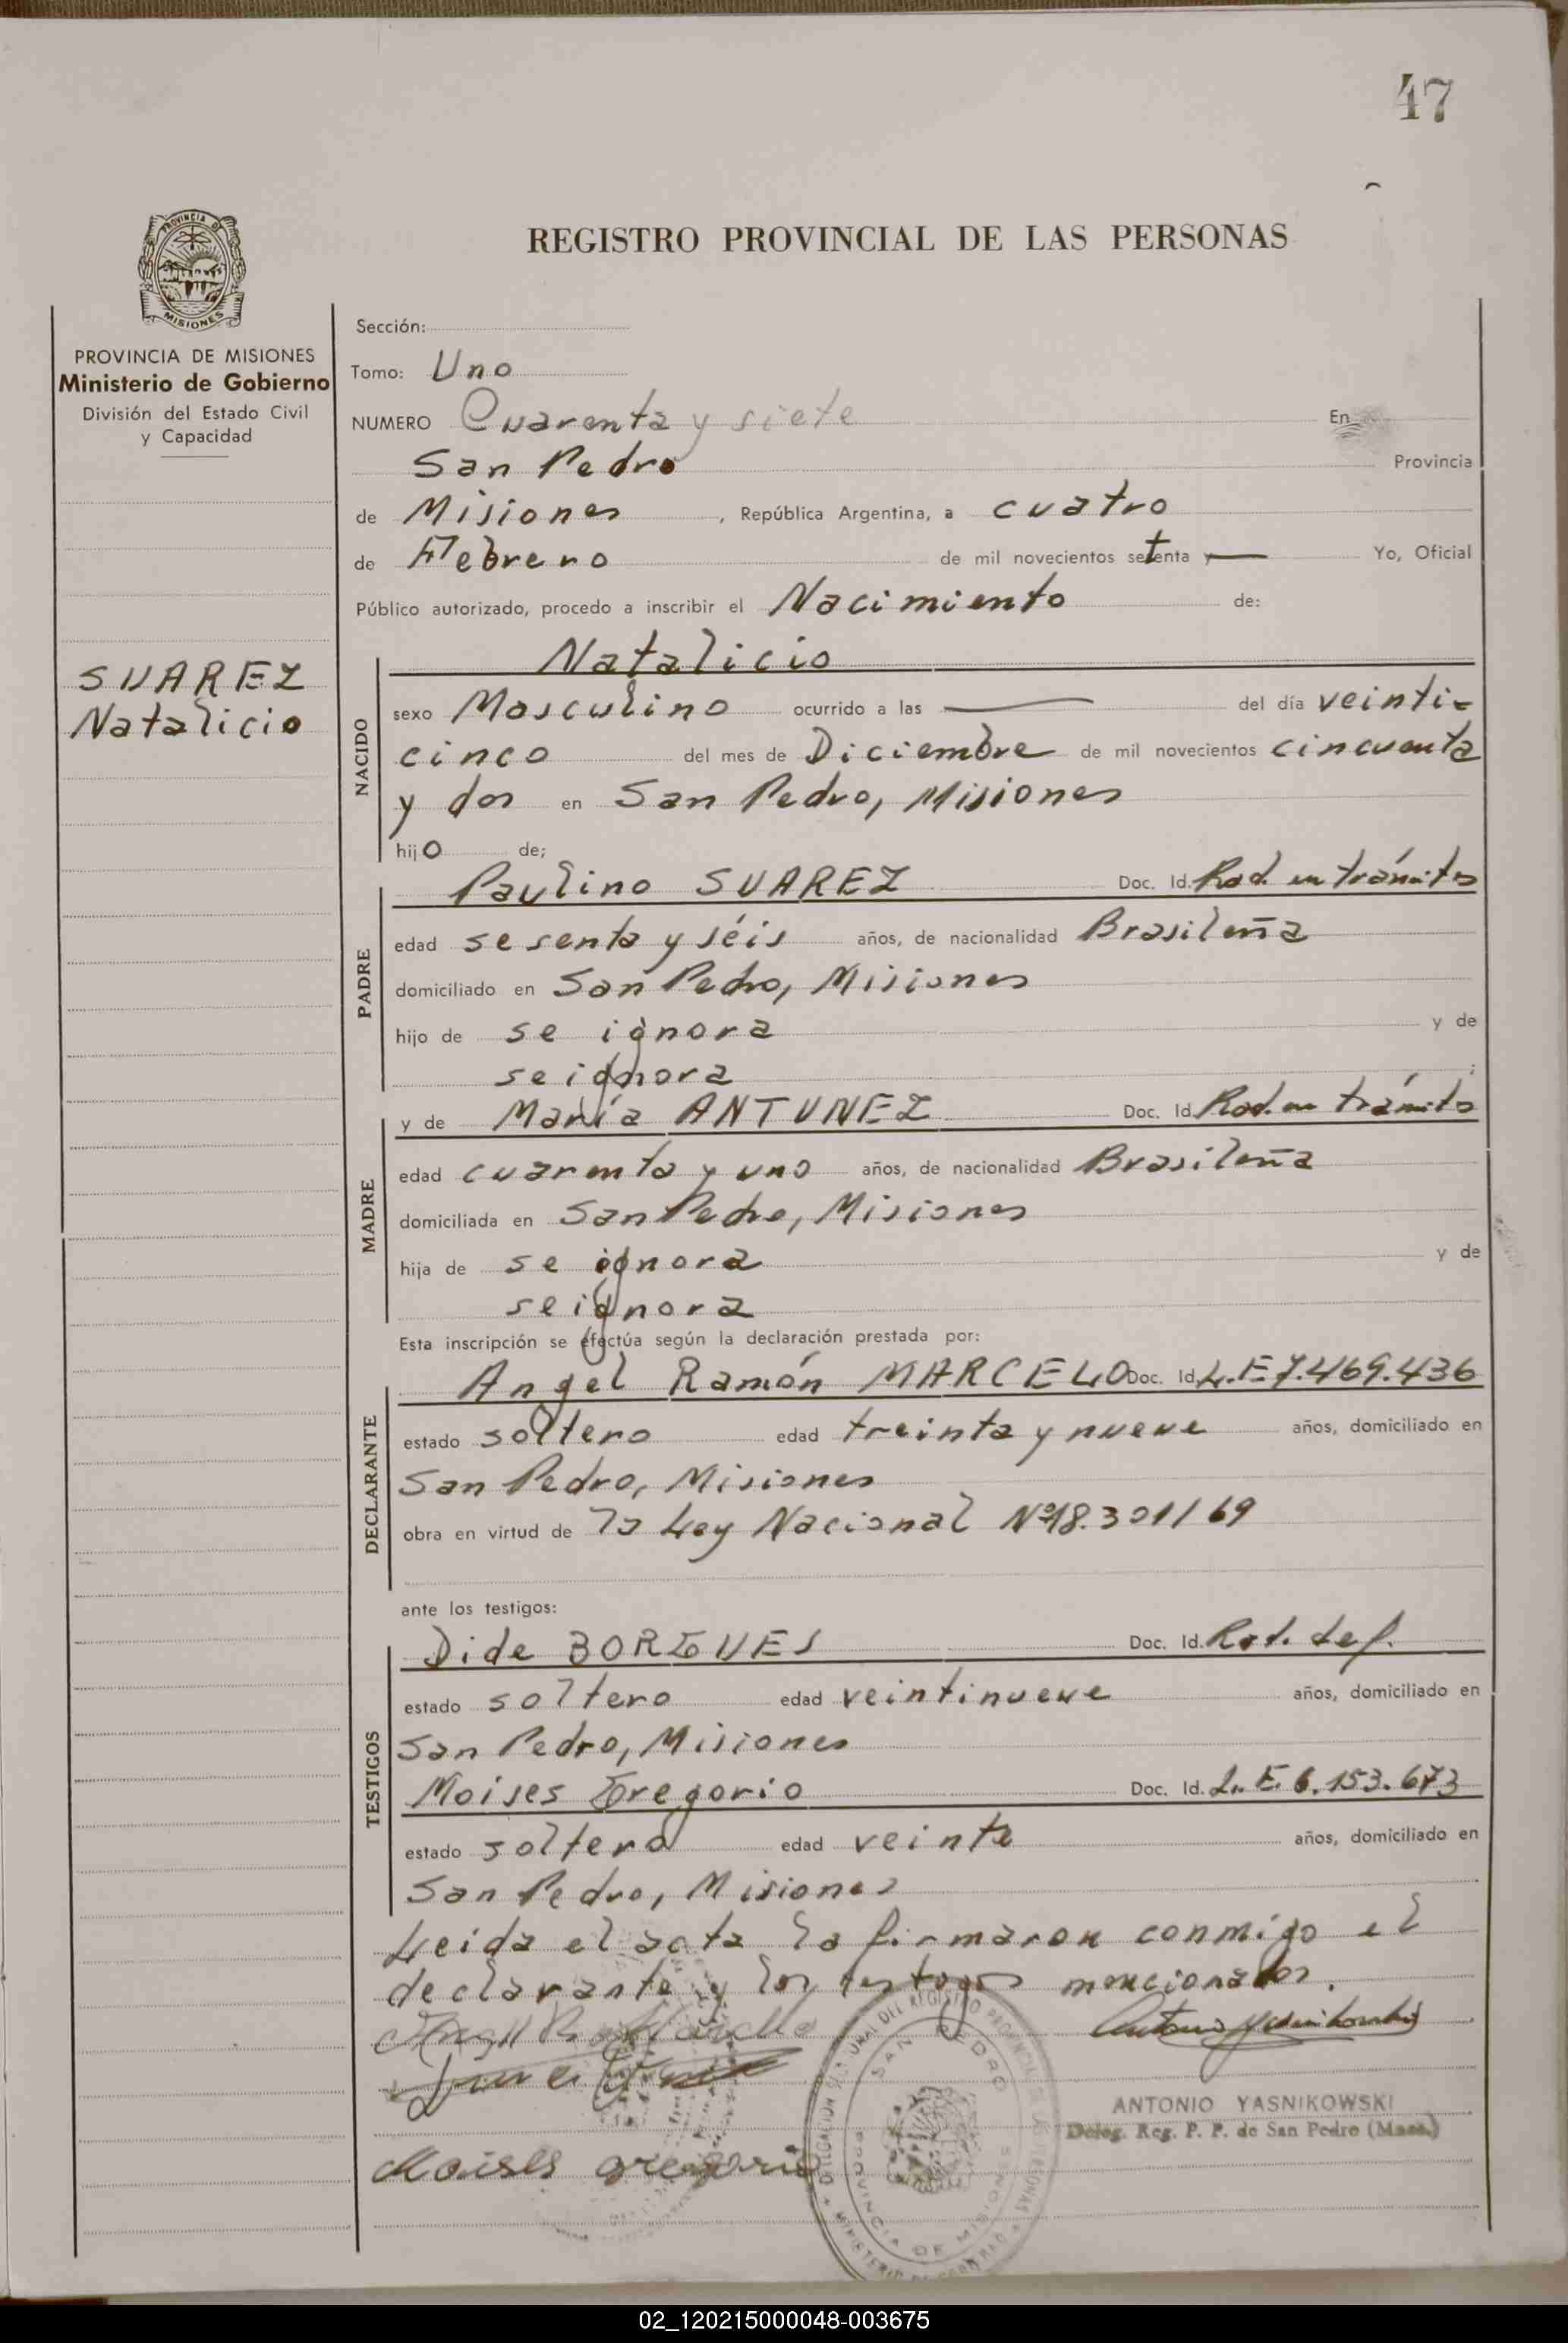 47
REGISTRO PROVINCIAL DE LAS PERSONAS
PROVINCIA DE
MISIONES
PROVINCIA DE MISIONES
Ministerio de Gobierno
División del Estado Civil
y Capacidad
SUAREZ
Natalicio
Sección:
Tomo: Uno
NUMERO Cuarenta y siete En
San Pedro Provincia
de Misiones, República Argentina, a cuatro
de Febrero de mil novecientos setenta y — Yo, Oficial
Público autorizado, procedo a inscribir el Nacimiento de:
Natalicio
NACIDO
sexo Masculino ocurrido a las — del día veinti-
cinco del mes de Diciembre de mil novecientos cincuenta
y dos en San Pedro, Misiones
hijo de;
Paulino SUAREZ Doc. Id. Rad. en trámite
PADRE
edad sesenta y séis años, de nacionalidad Brasileña
domiciliado en San Pedro, Misiones
hijo de se ignora y de
se ignora;
y de María ANTUNEZ Doc. Id. Rad. en trámite
MADRE
edad cuarenta y uno años, de nacionalidad Brasileña
domiciliada en San Pedro, Misiones
hija de se ignora y de
se ignora
Esta inscripción se efectúa según la declaración prestada por:
Angel Ramón MARCELO Doc. Id. L.E 7.469.436
DECLARANTE
estado soltero edad treinta y nueve años, domiciliado en
San Pedro, Misiones
obra en virtud de la Ley Nacional Nº 18.301/69
ante los testigos:
Dide BORGUES Doc. Id. Rad. def.
TESTIGOS
estado soltero edad veintinueve años, domiciliado en
San Pedro, Misiones
Moises Gregorio Doc. Id. L.E. 6.153.673
estado soltero edad veinte años, domiciliado en
San Pedro, Misiones
Leida el acta la firmaron conmigo el
declarante y los testigos mencionados.
ANTONIO YASNIKOWSKI
Deleg. Reg. P. P. de San Pedro (Mnes.)
Moises gregorio
DELEGACION SECCIONAL DEL REGISTRO PROVINCIAL DE LAS PERSONAS
SAN PEDRO
PROVINCIA DE MISIONES
MINISTERIO DE GOBIERNO
02_120215000048-003675